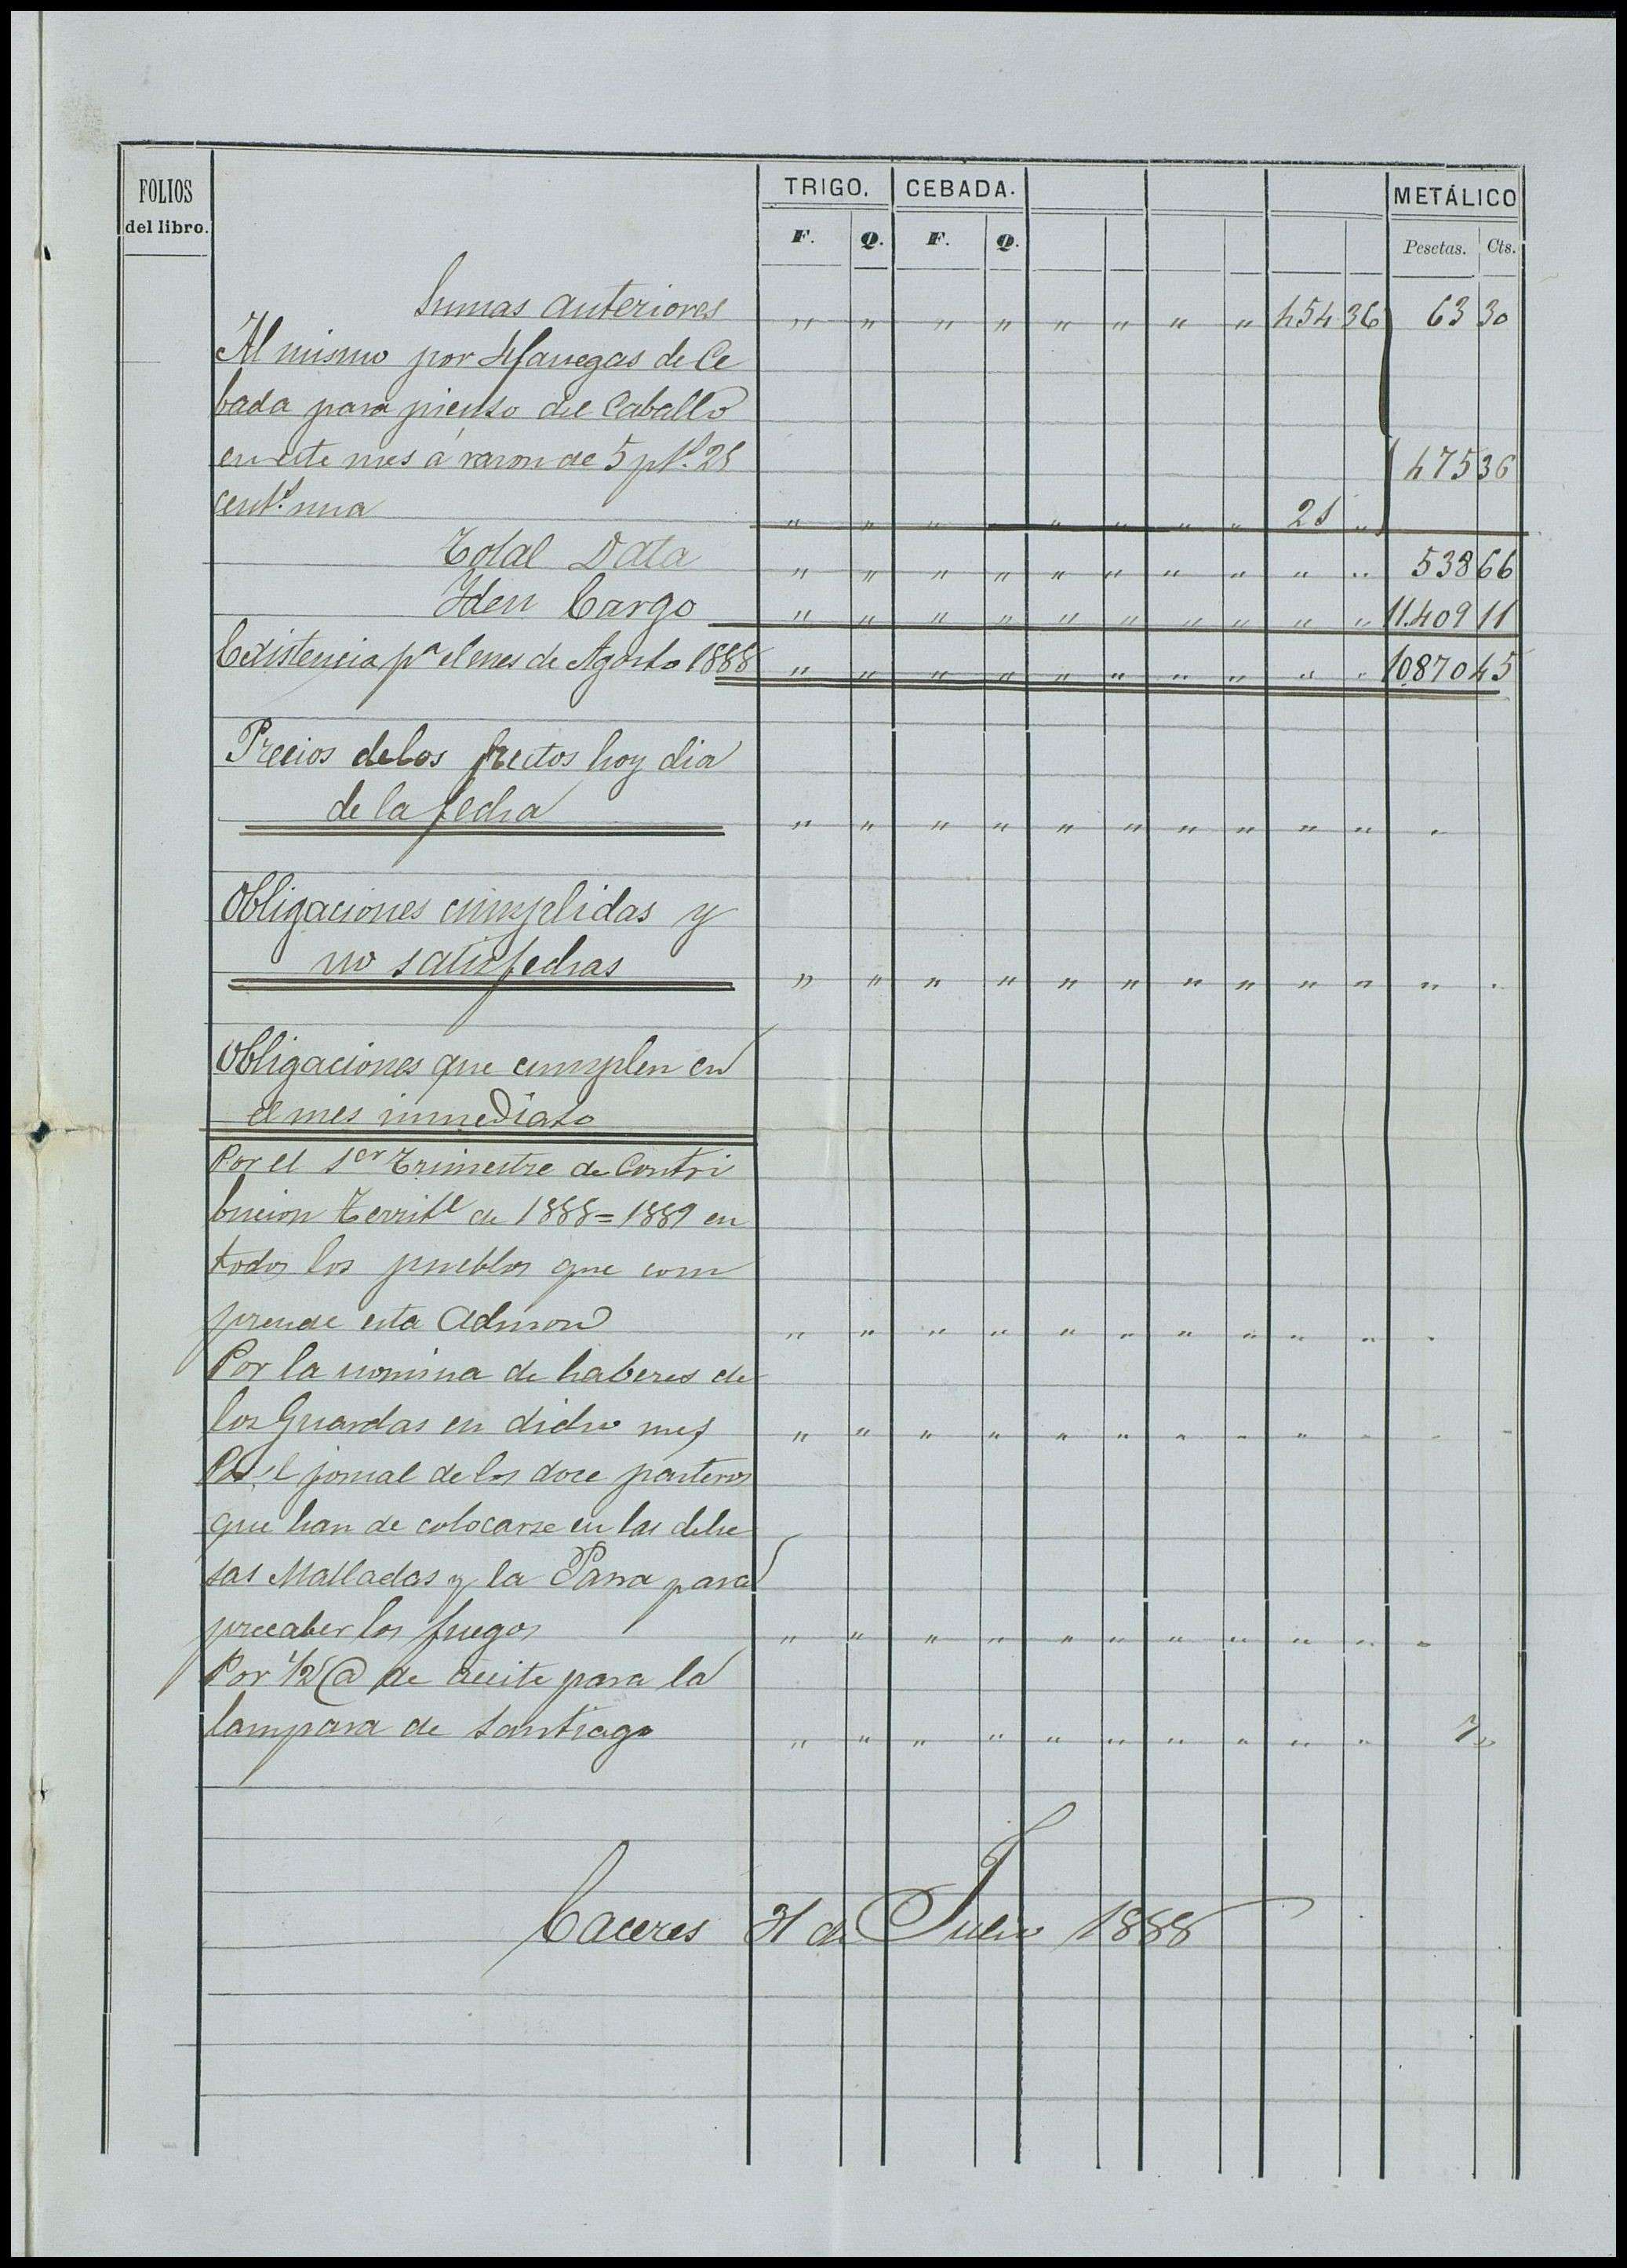 FOLIOS del libro. TRIGO. CEBADA. METÁLICO
F. Q. F. Q. Pesetas. Cts.
Sumas anteriores " " " " " " " " 454 36 63 30
Al mismo por 4 fanegas de Ce
bada para pienso del Caballo
en este mes á razon de 5 pts. 25 475 36
cents. una " " " " " " " 21 "
Total Data " " " " " " " " " " 538 66
Iden Cargo " " " " " " " " " " 11.409 11
Existencia pa el mes de Agosto 1888 " " " " " " " " " " 10.870 45
Precios de los frutos hoy dia
de la fecha " " " " " " " " " " "
Obligaciones cumplidas y
no satisfechas " " " " " " " " " " " "
Obligaciones que cumplen en
el mes inmediato
Por el 1er Trimestre de Contri
bucion Territl de 1888=1889 en
todos los pueblos que com
prende esta Admon " " " " " " " " " " "
Por la nomina de haberes de
los Guardas en dicho mes " " " " " " " " " " " "
Por el jornal de los doce porteros
que han de colocarse en las dehe
sas Malladas y la Parra para
precaber los fuegos " " " " " " " " " " "
Por 1/2 @ de aceite para la
lampara de Santiago " " " " " " " " " " 7 "
Caceres 31 de Julio 1888